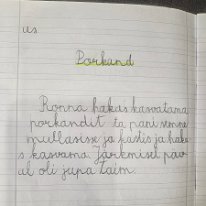 us
Porkand
Ronna hakas kasvatama
porkandit ta pani seme
mullasise ja kastis ja haka
s kasvama. Järkmisel päev
al oli juba taim